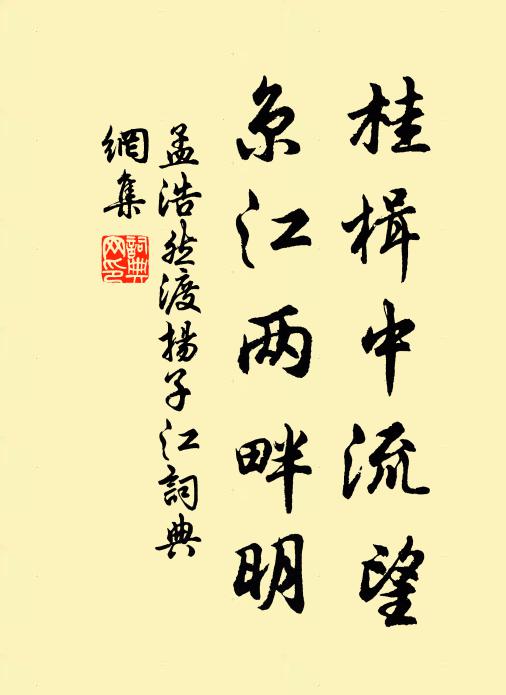 桂楫中流望
京江两畔明
孟浩然渡揚子江詞典
網集
詞典
网印